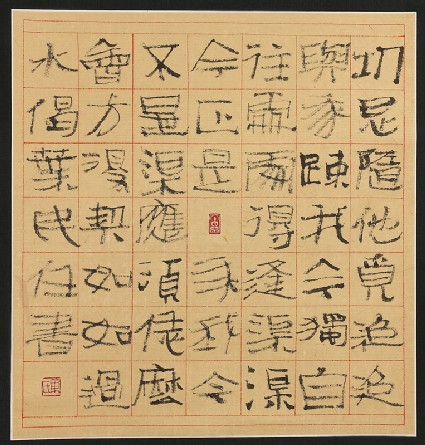 切忌隨他覓迢迢
與我疎我今獨自
往處處得逢渠渠
今正是我我今
不是渠應須恁麼
會方得契如如過
水偈葉民任書